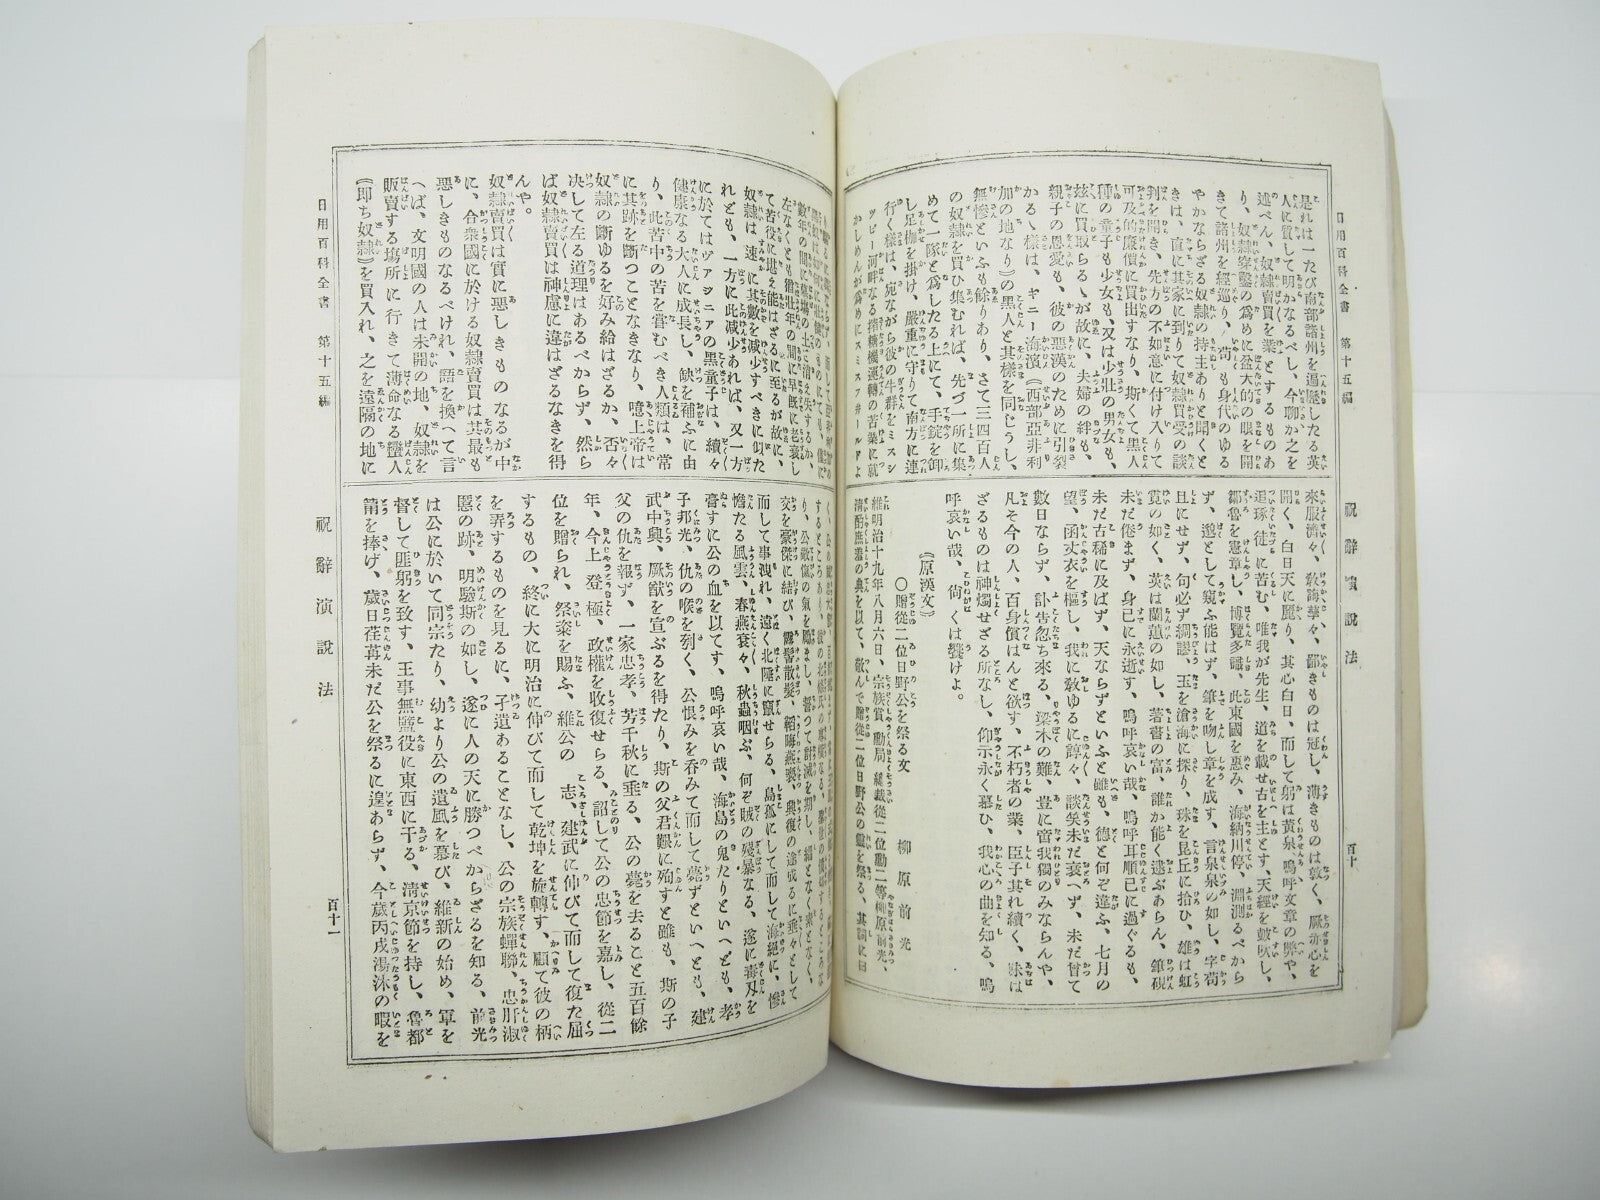 日用百科全書 第十五編
祝辭演說法
百十
是れは一たび南部諸州を遍歷したる英
人に質して明かなるべし、今聊か之を
述べん、奴隷賣買を業とするものあ
り、奴隷穿鑿の爲めに盆大的の眼を開
きて諸州を經巡り、苟も身代のゆる
やかならざる奴隷の持主ありと聞くと
きは、直に其家に到りて奴隷買受の談
判を開き、先方の不如意に付け入りて
可及的廉價に買出すなり、斯くて黑人
種の童子も少女も、又は少壯の男女も、
玆に買取らるゝが故に、夫婦の絆も、
親子の恩愛も、彼の惡漢のために引裂
かるゝ樣は、ギニー海濱《西部亞非利
加の地なり》の黑人と其樣を同じうし、
無慘といふも餘りあり、さて三四百人
の奴隷を買ひ集むれば、先づ一所に集
めて一隊と爲したる上にて、手錠を卸
し足枷を掛け、嚴重に守りて南方に連
行く樣は、宛ながら彼の牛群をミスシ
ッピー河畔なる
來服濟々、敎誨孳々、鄙きものは冠し、薄きものは敦く、厥赤心を
開く、白日天に麗り、其心白日、而して躬は黃泉、嗚呼文章の弊や、
追琢、徒に苦む、唯我が先生、道を載せ古を主とす、天經を皷吹し、
鄒魯を憲章し、博覽多識、此東國を惠み、海納川停、淵測るべから
ず、邈として窺ふ能はず、筆を吻し章を成す、言泉泉の如し、字苟
且にせず、句必ず綢繆、玉を滄海に探り、珠を昆丘に拾ひ、雄は虹
霓の如く、英は蘭蕙の如し、著書の富、誰か能く逮ぶあらん、筆硯
未だ倦まず、身已に永逝す、嗚呼哀い哉、嗚呼耳順已に過ぐるも、
未だ古稀に及ばず、天ならずといふと雖も、德と何ぞ違ふ、七月の
望、函丈衣を樞し、我に敎ゆるに諄々、談笑未だ衰へず、未だ曾て
數日ならず、訃吿忽ち來る、梁木の難、豈に啻我獨のみならんや、
凡そ今の人、百身償はんと欲す、不朽者の業、臣子其れ續く、昧は
ざるものは神燭せざる所なし、仰示永く慕ひ、我心の曲を知る、嗚
呼哀い哉、尙くは饗けよ。
《原漢文》
○贈從二位日野公を祭る文
柳原前光
維明治十九年八月六日、宗族賞勳局總裁從二位勳二等柳原前光、
淸酌庶羞の典を以て、敬んで贈從二位日野公の靈を祭る、其詞に曰
日用百科全書 第十五編
祝辭演說法
百十一
左なくとも強壯年の間に早旣に老衰し
て苦役に堪え能はざるに至るが故に、
奴隷は速に其數を減少すべきに似た
れども、一方に此減少あれば、又一方
に於てはヴァジニアの黑童子は、續々
健康なる大人に成長し、缺を補ふに由
り、此苦中の苦を嘗むべき人類は、常
に其跡を斷つことなきなり、噫上帝は
奴隷の斷ゆるを好み給はざるか、否々
決して左る道理はあるべからず、然ら
ば奴隷賣買は神慮に違はざるなきを得
んや。
奴隷賣買は實に惡しきものなるが中
に、合衆國に於ける奴隷賣買は其最も
惡しきものなるべけれ、語を換へて言
へば、文明國の人は未開の地、奴隷を
販賣する場所に行きて薄命なる蠻人
《卽ち奴隷》を買入れ、之を遠隔の地に
交を豪傑に結び、
而して事洩れ、遠く北陸に竄せらる、島孤にして而して海絕に、慘
憺たる風雲、春燕衰々、秋蟲咽ぶ、何ぞ賊の殘暴なる、遂に毒刄を
膏すに公の血を以てす、嗚呼哀い哉、海島の鬼たりといへども、孝
子邦光、仇の喉を刿く、公恨みを呑みて而して薨ずといへども、建
武中興、厥猷を宣ぶるを得たり、斯の父君艱に殉すと雖も、斯の子
父の仇を報ず、一家忠孝、芳千秋に垂る、公の薨を去ること五百餘
年、今上登極、政權を收復せらる、詔して公の忠節を嘉し、從二
位を贈られ、祭粢を賜ふ、維公の志、建武に伸びて而して復た屈
するもの、終に大に明治に伸びて而して乾坤を旋轉す、顧て彼の柄
を弄するものを見るに、孑遺あることなし、公の宗族蟬聯、忠肝淑
慝の跡、明驗斯の如し、遂に人の天に勝つべからざるを知る、前光
は公に於いて同宗たり、幼より公の遺風を慕び、維新の始め、軍を
督して匪躬を致す、王事無盬役に東西に干る、淸京節を持し、魯都
箭を捧げ、歲日荏苒未だ公を祭るに遑あらず、今歲丙戌湯沐の暇を